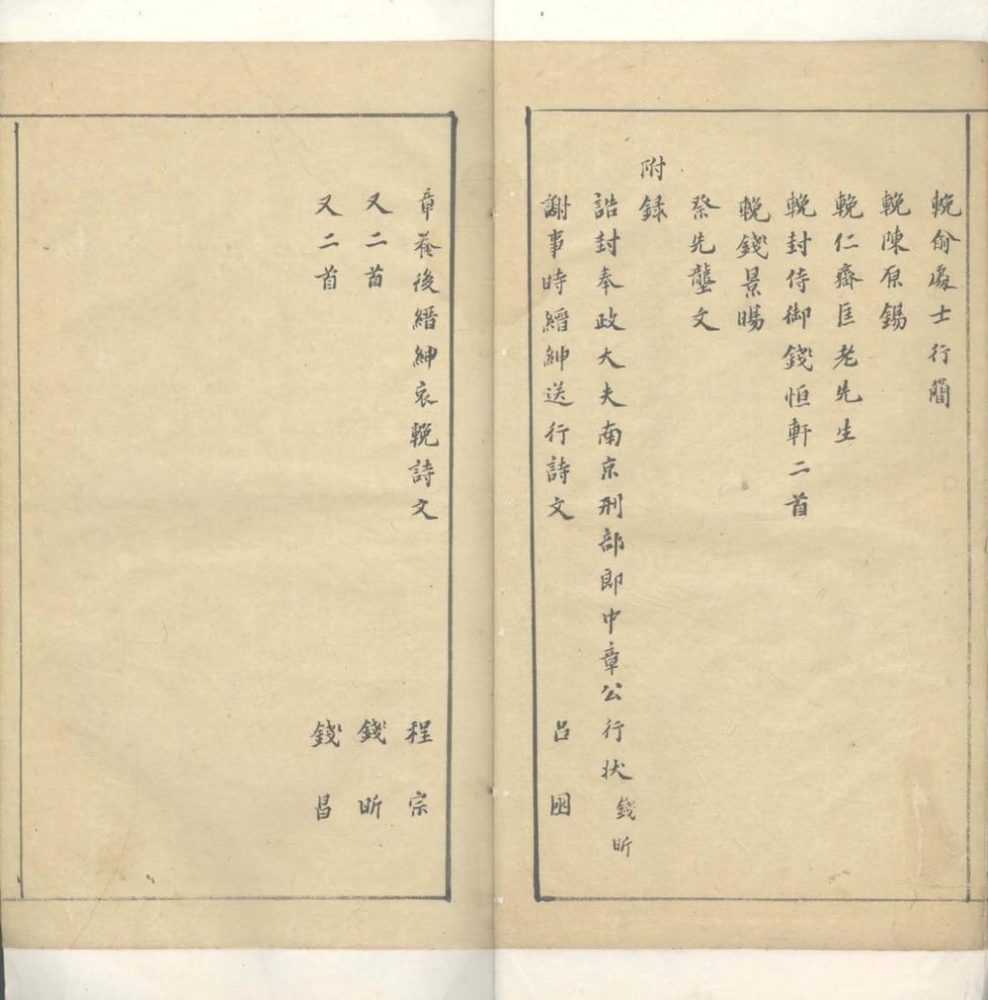 輓俞處士行簡
輓陳原錫
輓仁齋匡老先生
輓封侍御錢恒軒二首
輓錢景暘
祭先壟文
附錄
誥封奉政大夫南京刑部郎中章公行狀 錢昕
謝事時縉紳送行詩文 呂囦
章養後縉紳哀輓詩文 程宗
又二首 錢昕
又二首 錢昌